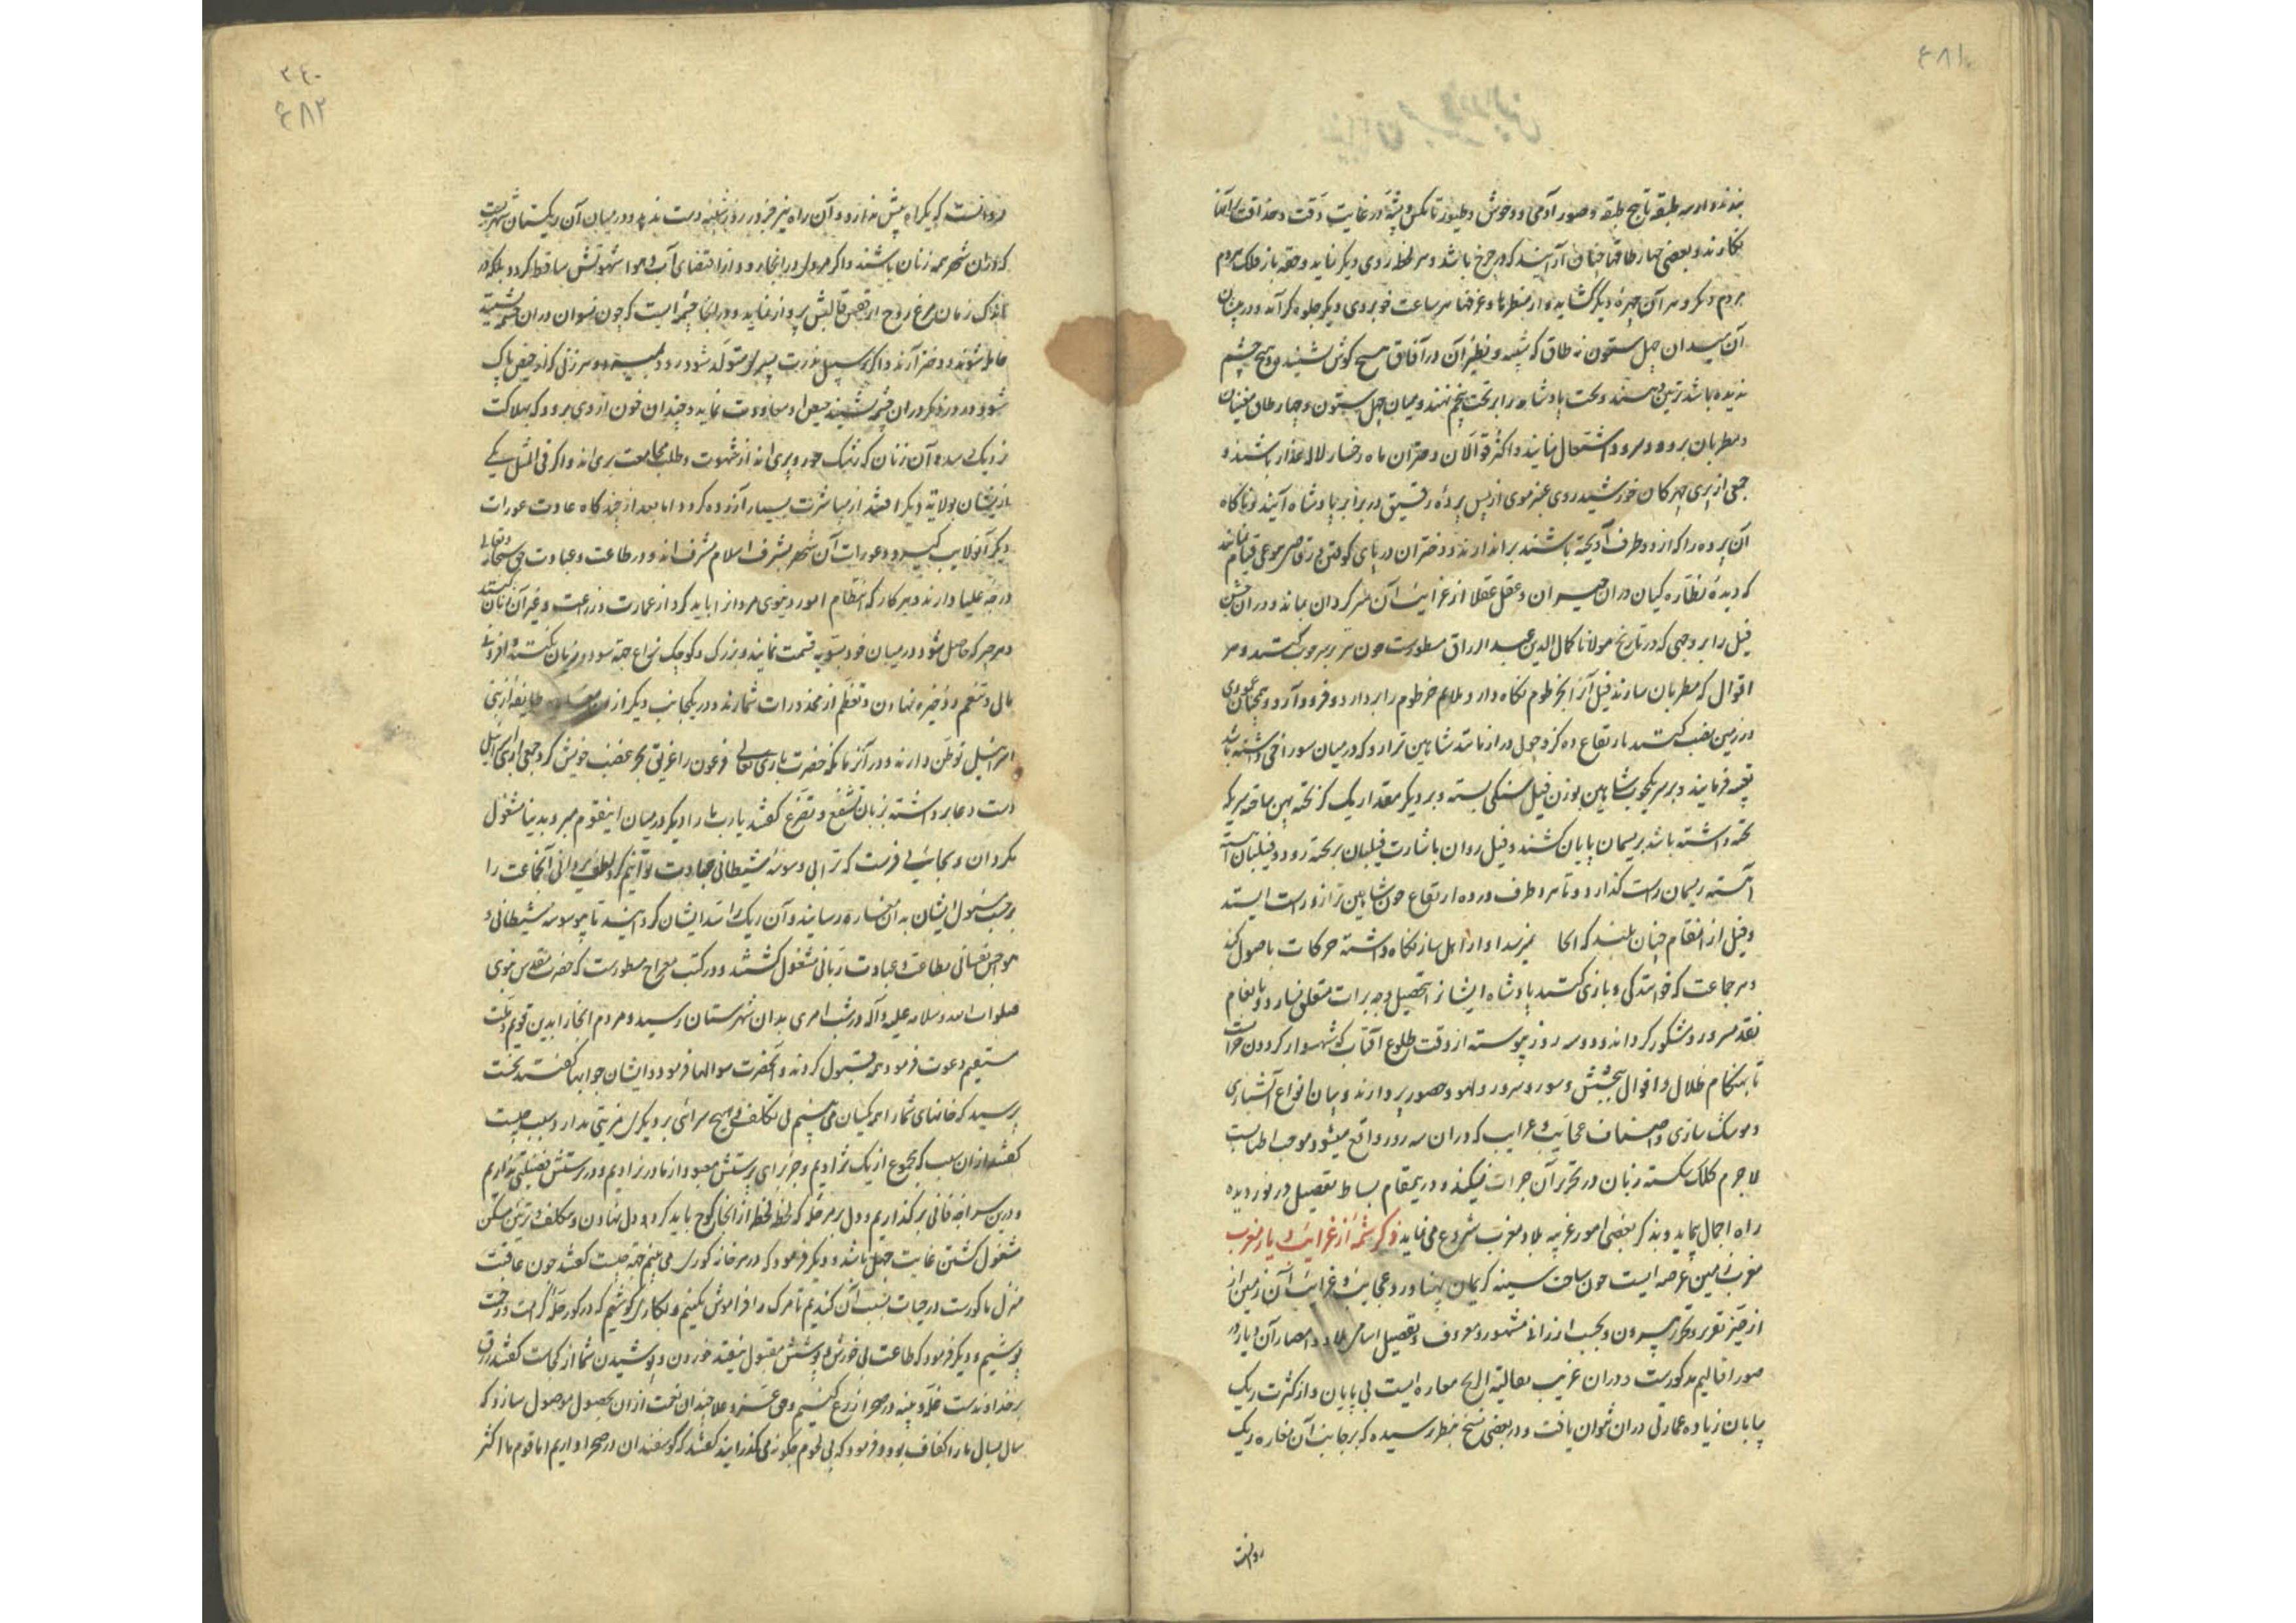 ۴۸۱
بندند و از سه طبقه تا پنج طبقه و صور آدمی و وحوش و طیور تا مکس و پشه در غایت دقت و حذاقت بر آنها
نکارند و بعضی چهار طاقها چنان آرایند که در چرخ باشد و هر لحظه روی دیکر نماید و حقه باز فلک هر دم
مردم دیکر و هر آن چهرهٔ دیگر کشاید و از منظرها و غرفها هر ساعت خوبروی دیکر جلوه کر آید و در میان
آن میدان چهل ستون نه طاق که شبیه و نظیر آن در آفاق هیچ کوش نشنیده و هیچ چشم
ندیده باشد ترتیب دهند و تخت پادشاه بر تخت پنجم نهند و میان چهل ستون و چهار طاق مغنیان
و مطربان برود و سرود اشتغال نمایند و اکثر قوالان دختران ماه رخسار لاله عذار باشند و
جمعی از پری چهرکان خورشید روی عنبر موی از پس پردهٔ رقیق در برابر پادشاه آیند و ناکاه
آن پرده را که از دو طرف آویخته باشند براندازند و دختران در پای کوفتن و رقاصی بنوعی قیام نمایند
که دیدهٔ نظاره کیان در آن حیران و عقل عقلا از غرایب آن سرکردان بماند و در آن جشن
فیل را بر وجهی که در تاریخ مولانا کمال الدین عبد الرزاق مسطورست
اقوال که مطربان سازند فیل آنرا بخرطوم نکاه دارد و ملایم خرطوم را بردارد و فرود آرد و همچنان عمودی
در زمین نصب کنند بارتفاع ده کز و چوب دراز مانند شاهین ترازو که در میان سوراخی داشته باشد
تعبیه فرمایند و بر سر یکچوب شاهین بوزن فیل سنکی بسته و بر دیکر مقدار یک کز تخته پهن ساخته سر یکه
تخته داشته باشد بریسمان پایان کشند و فیل روان باشارت فیلبان بر تخته رود و فیلبان آهسته
آهسته ریسمان راست کذارد و تا هر دو طرف در ده ارتفاع چون شاهین ترازو راست ایستد
و فیل از آن مقام چنان بلند که آنجا نمیرسد آواز اهل ساز نکاه داشته حرکات باصول کند
و هر جماعت که خوانندکی و بازی کنند پادشاه ایشانرا تحصیل وجه برات متعلق نسازد و بانعام
نقد مسرور و مشکور کرداند و سه روز پیوسته از وقت طلوع آفتاب که شهسوار کردون خرامست
تا بهنکام ظلال و افول بجشن و سور و سرور و لهو و حضور پردازند و بیان انواع آتشبازی
و موشک سازی و اصناف عجایب و غرایب که در آن سه روز واقع میشود موجب اطنابست
لا جرم کلک شکسته زبان در تحریر آن جرات نمیکند و درین مقام بساط تفصیل در نوردیده
راه اجمال پیماید و بذکر بعضی امور غریبه بلاد مغرب شروع می نماید ذکر شمهٔ از غرایب دیار مغرب
مغرب زمین عرصه ایست چون ساحت سینه کریمان پهناور و عجایب و غرایب آن زمین از
از حیز تقریر و تحریر بیرون و بحسب ارزانی مشهور و معروف و تفصیل اسامی بلاد و امصار آن دیار در
صور اقالیم مذکورست و در آن غریب مغاره ایست بی پایان و از کثرت ریک
بیابان زیاده عمارتی در آن نتوان یافت و در بعضی نسخ بنظر رسیده که بر جانب آن مغاره ریک
روانست
۲۴۰
۴۸۲
روانست که یکراه پیش ندارد و آن راه نیز جز در روز شنبه دست ندهد و در میان آن ریکستان شهریست
که در آن شهر همه زنان باشند و اکر مردی در آنجا رود از اقتضای آب و هوا شهوتش ساقط کردد بلکه در
اندک زمان مرغ روح از قفص قالبش پرواز نماید و در آنجا چشمه ایست که چون نسوان در آن چشمه نشینند
حامله شوند و دختر آرند و اکر بر سبیل ندرت پسری متولد شود زود بمیرد و هر زنی که از حیض پاک
شود و روز دیکر در آن چشمه نشیند حیض او معاودت نماید و چندان خون از وی برود که بهلاکت
نزدیک رسد و آن زنان که رشک حور و پری اند از شهوت و طلب مجامعت بری اند و اکر فی المثل یکی
از ایشان بولایة دیکر افتد از مباشرت بسیار آزرده کردد اما بعد از چند کاه عادت عورات
دیکر آن ولایت کیرد و عورات آن شهر بشرف اسلام مشرف اند و در طاعت و عبادت حق سبحانه و تعالی
درجه علیا دارند و هر کار که انتظام امور دنیوی مردان را باید کرد از عمارت و زراعت و غیر آن زنان کنند
و هر چیز که حاصل شود در میان خود بسویه قسمت نمایند و بزرک و کوچک نزاع جهة سود و زیان نکنند و افزونی
مالی و تنعم و ذخیره نهادن و تعظم از محذورات شمارند و در یکجانب دیکر از آن مغاره طایفهٔ از بنی
اسرائیل توطن دارند و در آنزمانکه حضرت باری تعالی فرعون را غریق بحر غضب خویش کرد جمعی از بنی اسرائیل
دست دعا برداشته بزبان تشفع و تضرع کفتند یا رب ما را دیکر در میان اینقوم مبر و بدنیا مشغول
مکردان و بجایی فرست که ترا بی وسوسهٔ شیطانی عبادت توانیم کرد لطف یزدانی آنجماعت را
بر حسب مسؤل ایشان بدان مغاره رسانید و آن ریک را سد ایشان کردانید تا بی وسوسه شیطانی و
هواجس نفسانی بطاعت و عبادت ربانی مشغول کشتند و در کتب معراج مسطورست که حضرت مقدس نبوی
صلوات الله و سلامه علیه و آله در شب اسری بدان شهرستان رسید و مردم آنجا را بدین قویم و ملت
مستقیم دعوت فرمود همه قبول کردند و آنحضرت سوالها فرمود و ایشان جوابها کفتند نخست
پرسید که خانهای شما را همه یکسان می بینم بی تکلف و هیچ سرائی بر دیکری مزیتی ندارد سبب چیست
کفتند از آن سبب که مجموع از یک نژادیم و جز برای پرستش معبود از مادر نزادیم و در پرستش فضیلتی نداریم
و درین سراچه فانی بر کذاریم و دل بر مرحلهٔ که لحظه لحظه از آنجا کوچ باید کرد و دل نهادن و تکلف و تزئین مسکن
مشغول کشتن غایت جهل باشد و دیکر فرمود که در هر خانه کوری می بینم جهة چیست کفتند چون عاقبت
منزل ما کورست در حیات بنسبت آن کندیم تا مرک را فراموش نکنیم و بکاری کوشیم که در کور حلهٔ کرامت و رحمت
پوشیم و دیکر فرمود که طاعت بی خورش و پوشش مقبول نیفتد خوردن و پوشیدن شما از کجاست کفتند رزق
بر خداوندست غله و پنبه در صحرا زرع کنیم و حق عز و علا چندان نعمت از آن بحصول موصول سازد که
سال بسال ما را کفاف بود و فرمود که بی لحوم چکونه می کذرانید کفتند که کوسفندان در صحرا داریم اما قوم ما اکثر